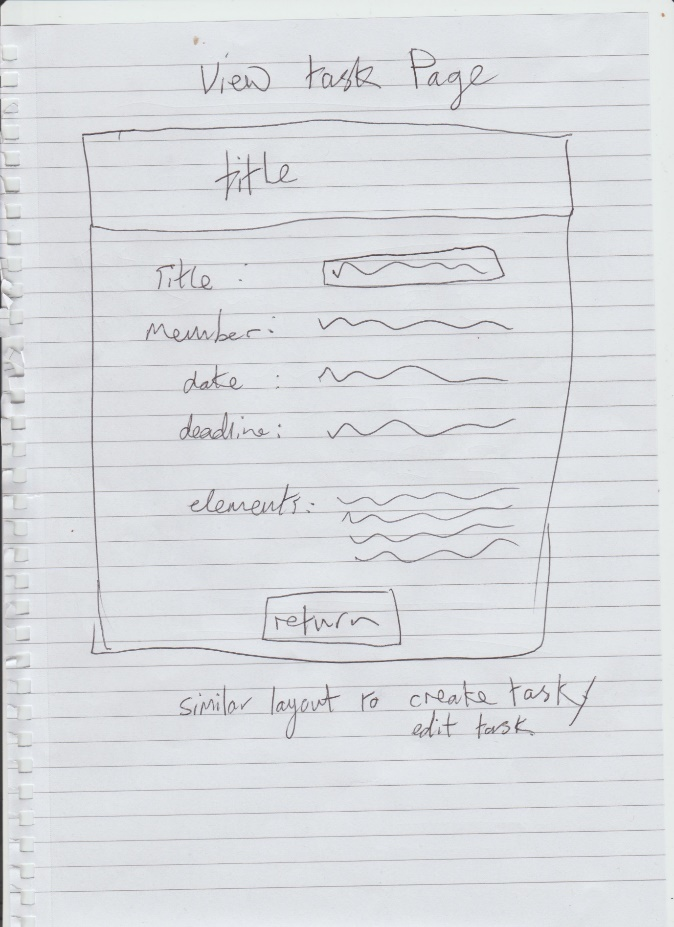 View task Page
title
Title :
Member:
date :
deadline:
elements:
return
similar layout to create task/
edit task